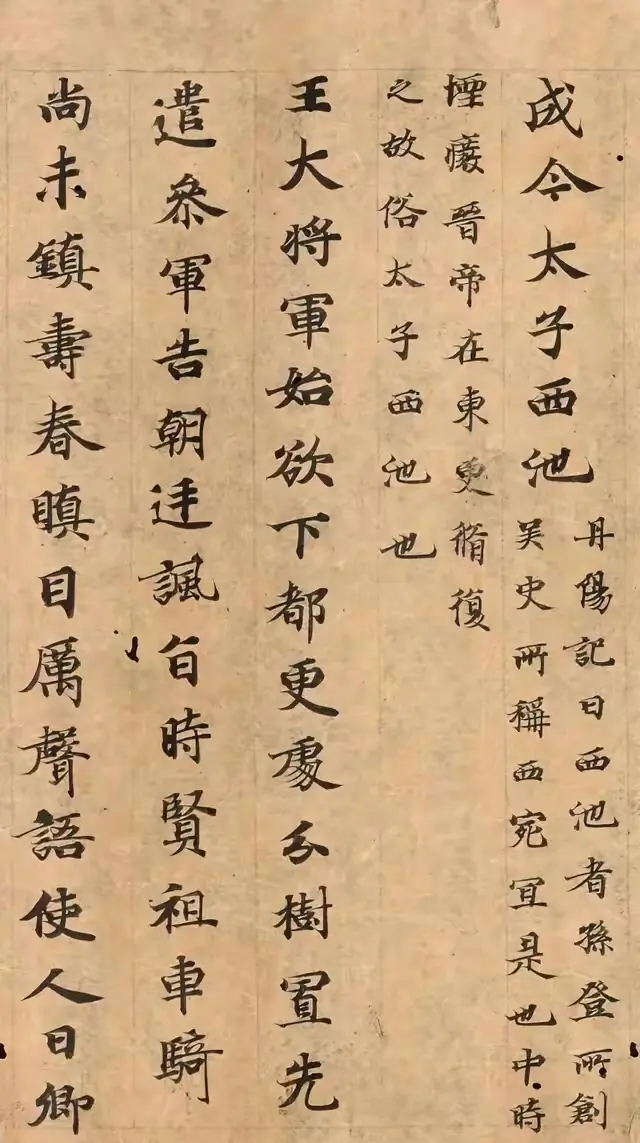 成今太子西池
丹陽記曰西池者孫登所創
吳史所稱西宛冝是也中時
堙癈晉帝在東更脩復
之故俗太子西池也
王大將軍始欲下都更處分樹置先
遣叅軍告朝廷諷旨時賢祖車騎
尚未鎮壽春瞋目厲聲語使人曰卿